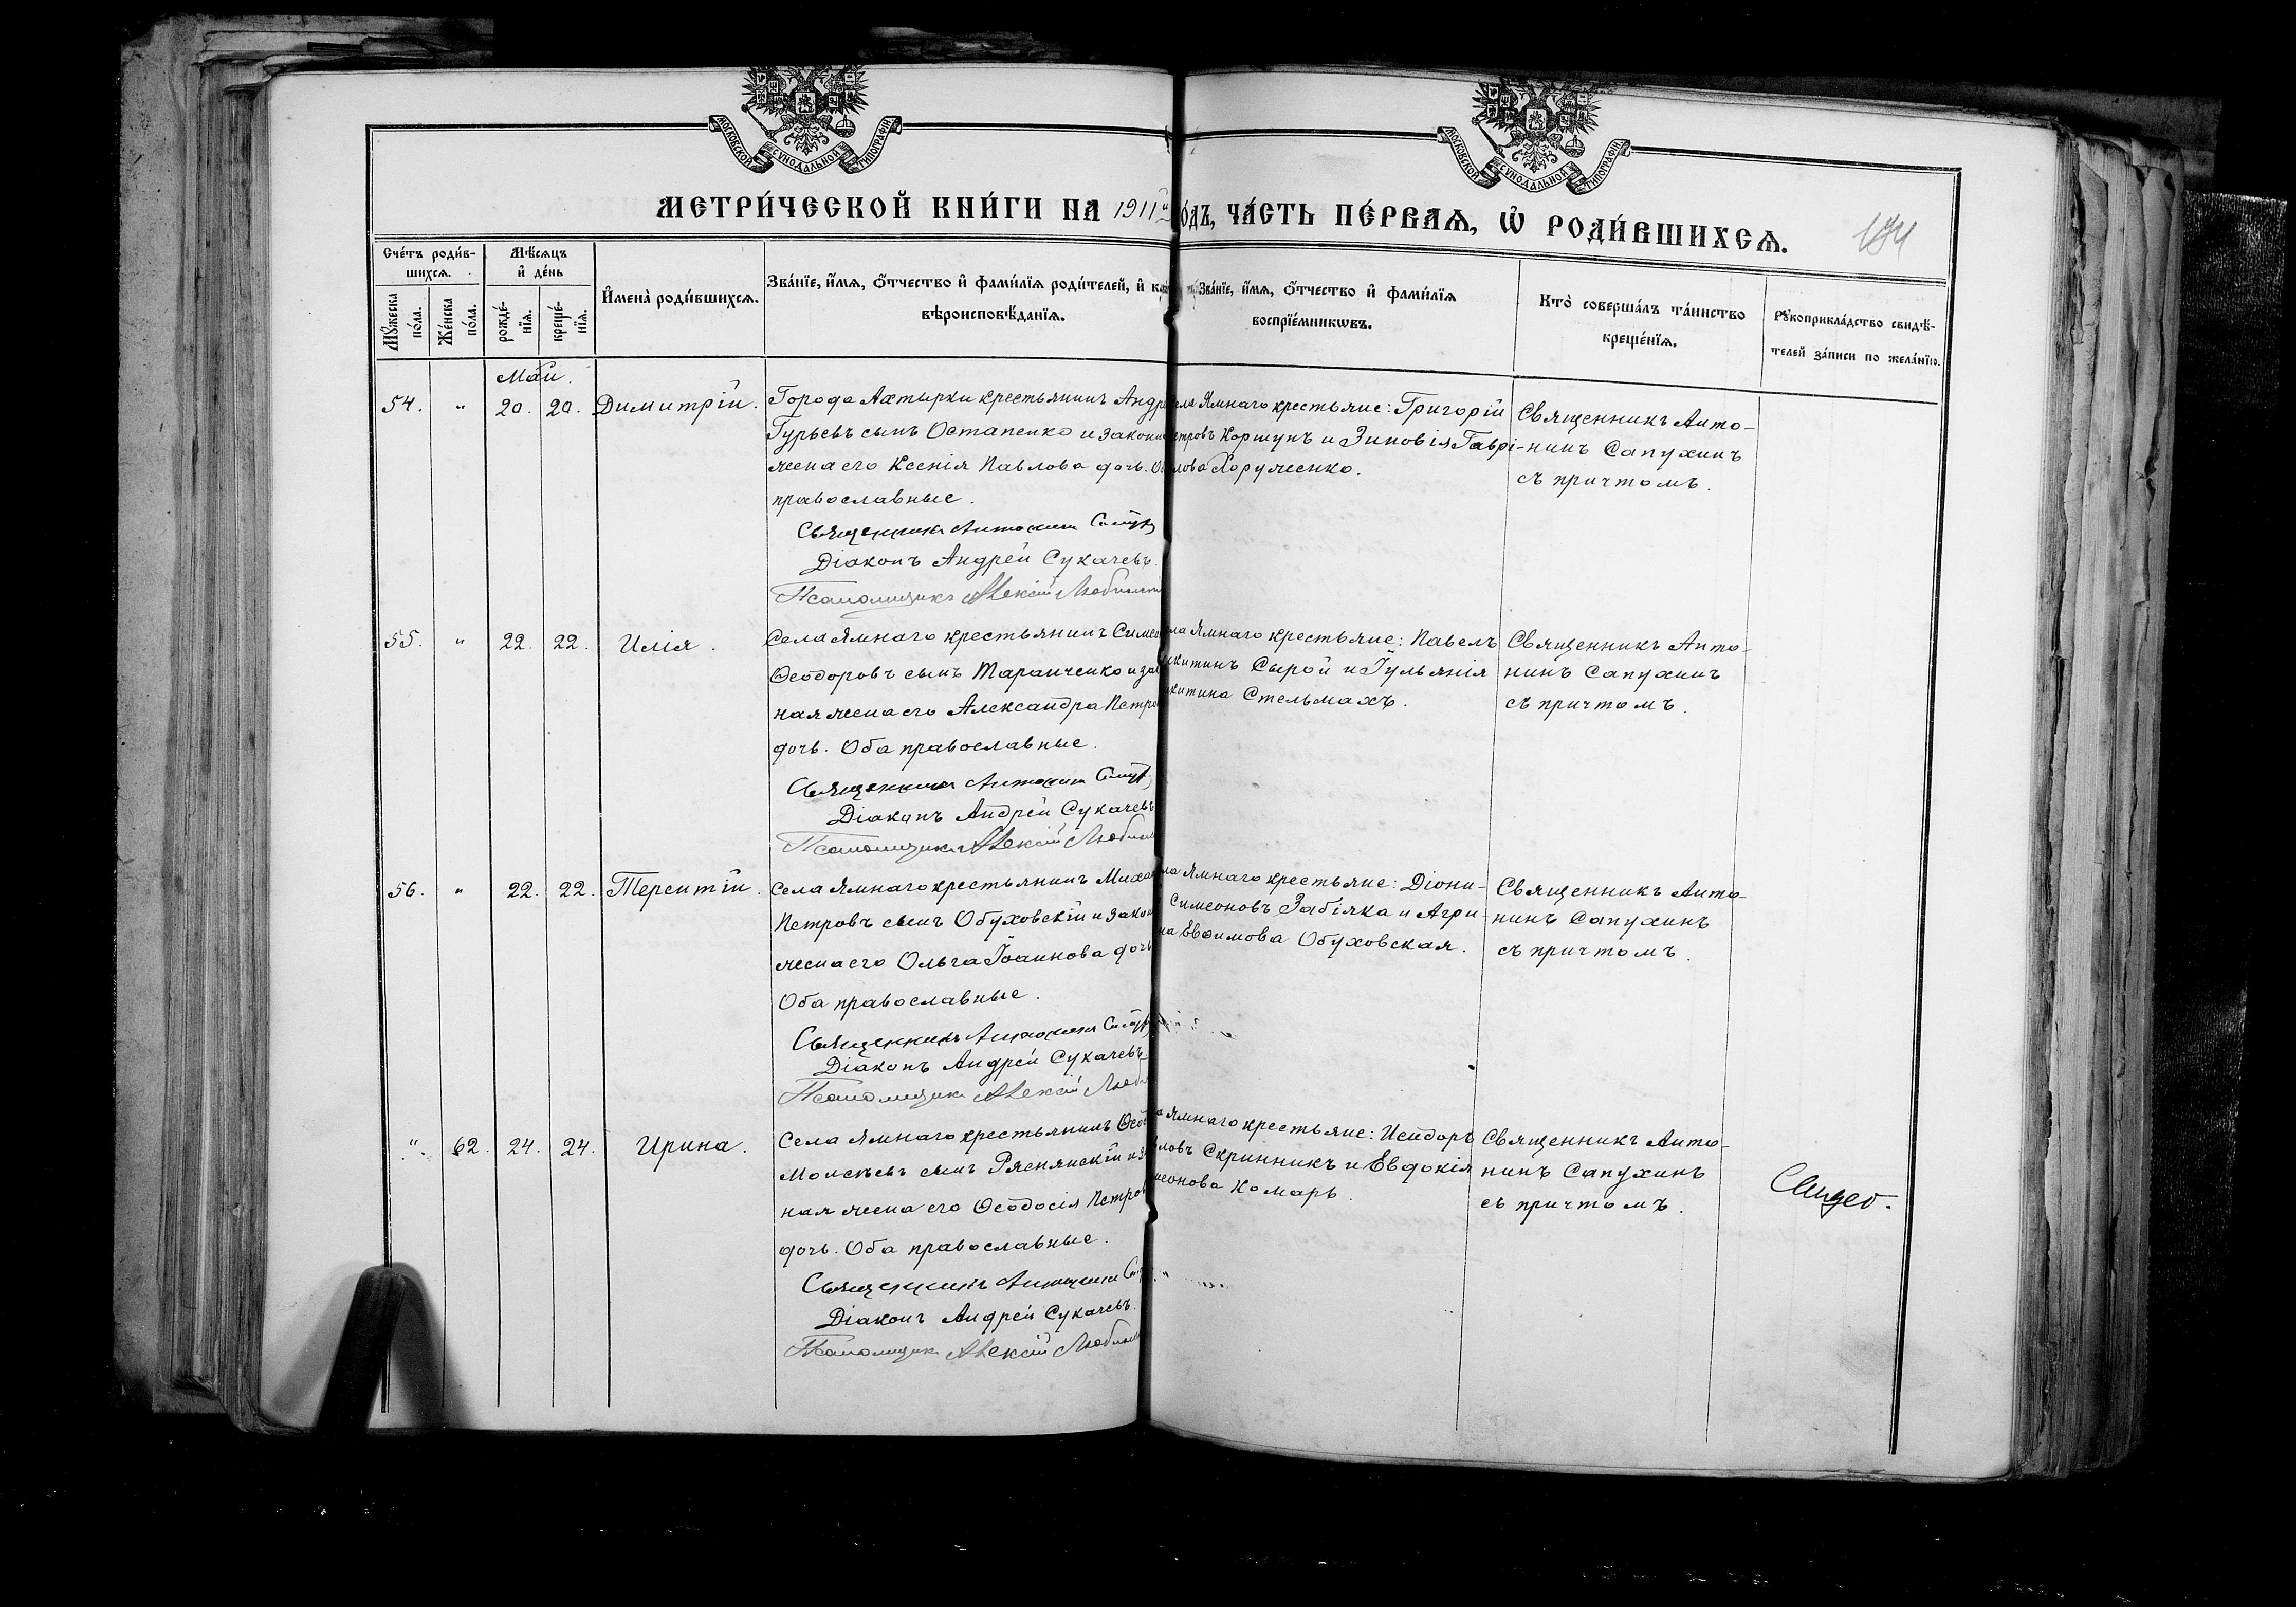 МОСКОВСКОЙ СѴНОДАЛЬНОЙ ТИПОГРАФІИ
МОСКОВСКОЙ СѴНОДАЛЬНОЙ ТИПОГРАФІИ
МЕТРИ́ЧЕСКОЙ КНИ́ГИ НА 1911й
О́ДЪ, ЧА́СТЬ ПЕ́РВАѦ, Ѡ҆ РОДИ́ВШИХСѦ.
Сче́тъ роди́в-
шихсѧ.
Мꙋ́жеска по́ла.
Же́нска по́ла.
Мѣ́сѧцъ
и҆ де́нь
рожде́-нїѧ.
креще́-нїѧ.
И҆мена̀ роди́вшихсѧ.
Зва́нїе, и҆́мѧ, ѻ҆́тчество и҆ фами́лїѧ роди́телей, и҆
вѣроисповѣ́данїѧ.
Зва́нїе, и҆́мѧ, ѻ҆́тчество и҆ фами́лїѧ
воспрїе́мникѡвъ.
Кто̀ соверша́лъ та́инство
креще́нїѧ.
Рꙋкоприкла́дство свидѣ́-
телей за́писи по жела́нїю.
Май.
54. " 20. 20. Димитрій.
Города Ахтырки крестьянинъ Андре
Гурьевъ сынъ Остапенко и закон
жена его Ксенія Павлова дочь. О
православные.
Священникъ Антонинъ Сапух
Діаконъ Андрей Сукачевъ.
Псаломщикъ Алексій Любим
ела Ямнаго крестьяне: Григорій
етровъ Коршунъ и Зиновія Гаврі-
лова Хоруженко.
Священникъ Анто-
нинъ Сапухинъ
съ причтомъ.
55. " 22. 22. Илія.
Села Ямнаго крестьянинъ Симео
Ѳеодоровъ сынъ Таранченко и зак
ная жена его Александра Петро
дочь. Оба православные.
Священникъ Антонинъ Сапух
Діаконъ Андрей Сукачевъ
Псаломщикъ Алексій Любим
ла Ямнаго крестьяне: Павелъ
икитинъ Сырой и Іульянія
икитина Стельмахъ.
Священникъ Анто-
нинъ Сапухинъ
съ причтомъ.
56. " 22. 22. Терентій.
Села Ямнаго крестьянинъ Миха
Петровъ сынъ Обуховскій и закон
жена его Ольга Іоаннова дочь
Оба православные.
Священникъ Антонинъ Сапух
Діаконъ Андрей Сукачевъ.
Псаломщикъ Алексій Люби
ла Ямнаго крестьяне: Діони-
Симеоновъ Забіяка и Агри-
на Евѳимова Обуховская.
Священникъ Анто-
нинъ Сапухинъ
съ причтомъ.
". 62. 24. 24. Ирина.
Села Ямнаго крестьянинъ Ѳеод
Моисѣевъ сынъ Ряснянскій и за
ная жена его Ѳеодосія Петров
дочь. Оба православные.
Священникъ Антонинъ Са
Діаконъ Андрей Сукачевъ.
Псаломщикъ Алексій Любим
а Ямнаго крестьяне: Исидоръ
вловъ Скринникъ и Евдокія
меонова Комарь.
Священникъ Анто-
нинъ Сапухинъ
съ причтомъ.